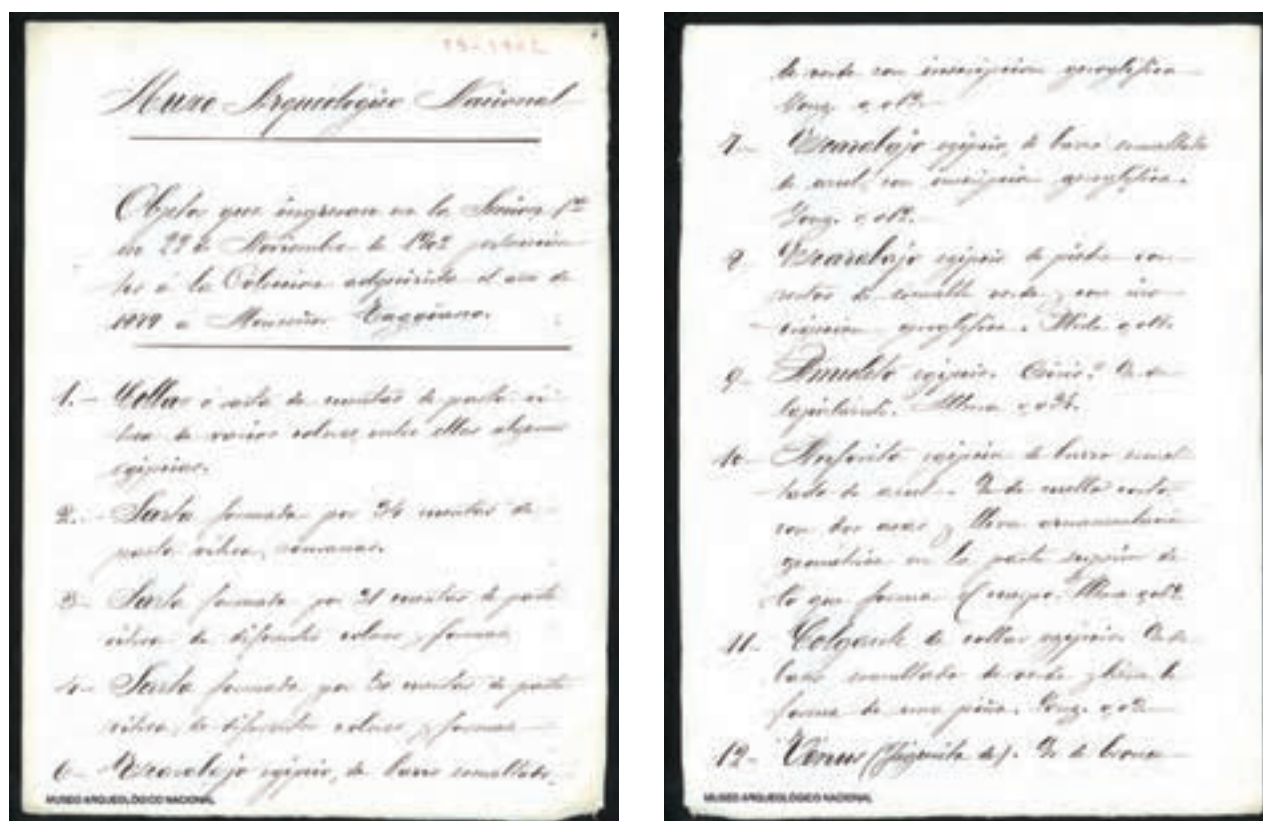 Museo Arqueológico Nacional
Objetos que ingresan en la Sección 1ª
en 29 de Noviembre de 1902 pertenecien-
tes a la Colección adquirida el año de
1879 a Monseñor Taggiasco.
1.- Collar o sarta de cuentas de pasta ví-
trea de varios colores entre ellas algunas
egipcias.
2.- Sarta formada por 34 cuentas de
pasta vítrea, romanas.
3.- Sarta formada por 21 cuentas de pasta
vítrea de diferentes colores y formas
4.- Sarta formada por 30 cuentas de pasta
vítrea, de diferentes colores y formas
6.- Escarabajo egipcio, de barro esmaltado,
MUSEO ARQUEOLÓGICO NACIONAL
de verde con inscripción geroglífica
Long. 0,012.
7.- Escarabajo egipcio, de barro esmaltado
de azul, con inscripción geroglífica.
Long. 0,012.
8. Escarabajo egipcio de piedra con
restos de esmalte verde y con ins-
cripción geroglífica.
9.- Amuleto egipcio. Es de
lapislázuli. Altura
10.- Anforita egipcia de barro esmal-
tado de azul. Es de cuello corto
con dos asas y lleva ornamentación
geométrica en la parte superior de
lo que forma el cuerpo. Altura
11.- Colgante de collar egipcio. Es de
barro esmaltado de verde y tiene la
forma de una piña. Long.
12.- Venus (figurita de). Es de bronce
MUSEO ARQUEOLÓGICO NACIONAL